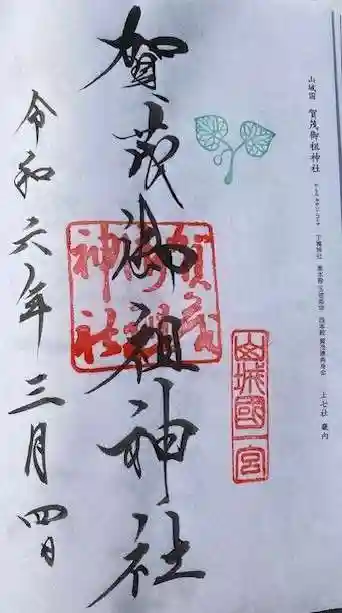 山城国 賀茂御祖神社
賀茂御祖神社
賀茂
御祖
神社
山城國一宮
令和六年三月四日